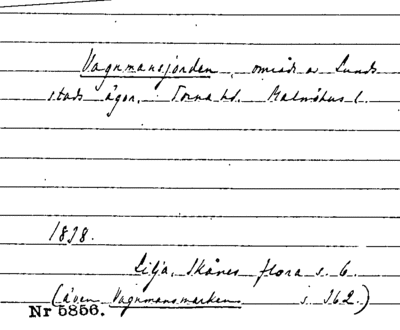 Vagnmansjorden, område av Lunds
stads ägor. Torna hd. Malmöhus l.
1838.
Lilja, Skånes flora s. 6.
(även Vagnmansmarken s. 362.)
Nr 5856.